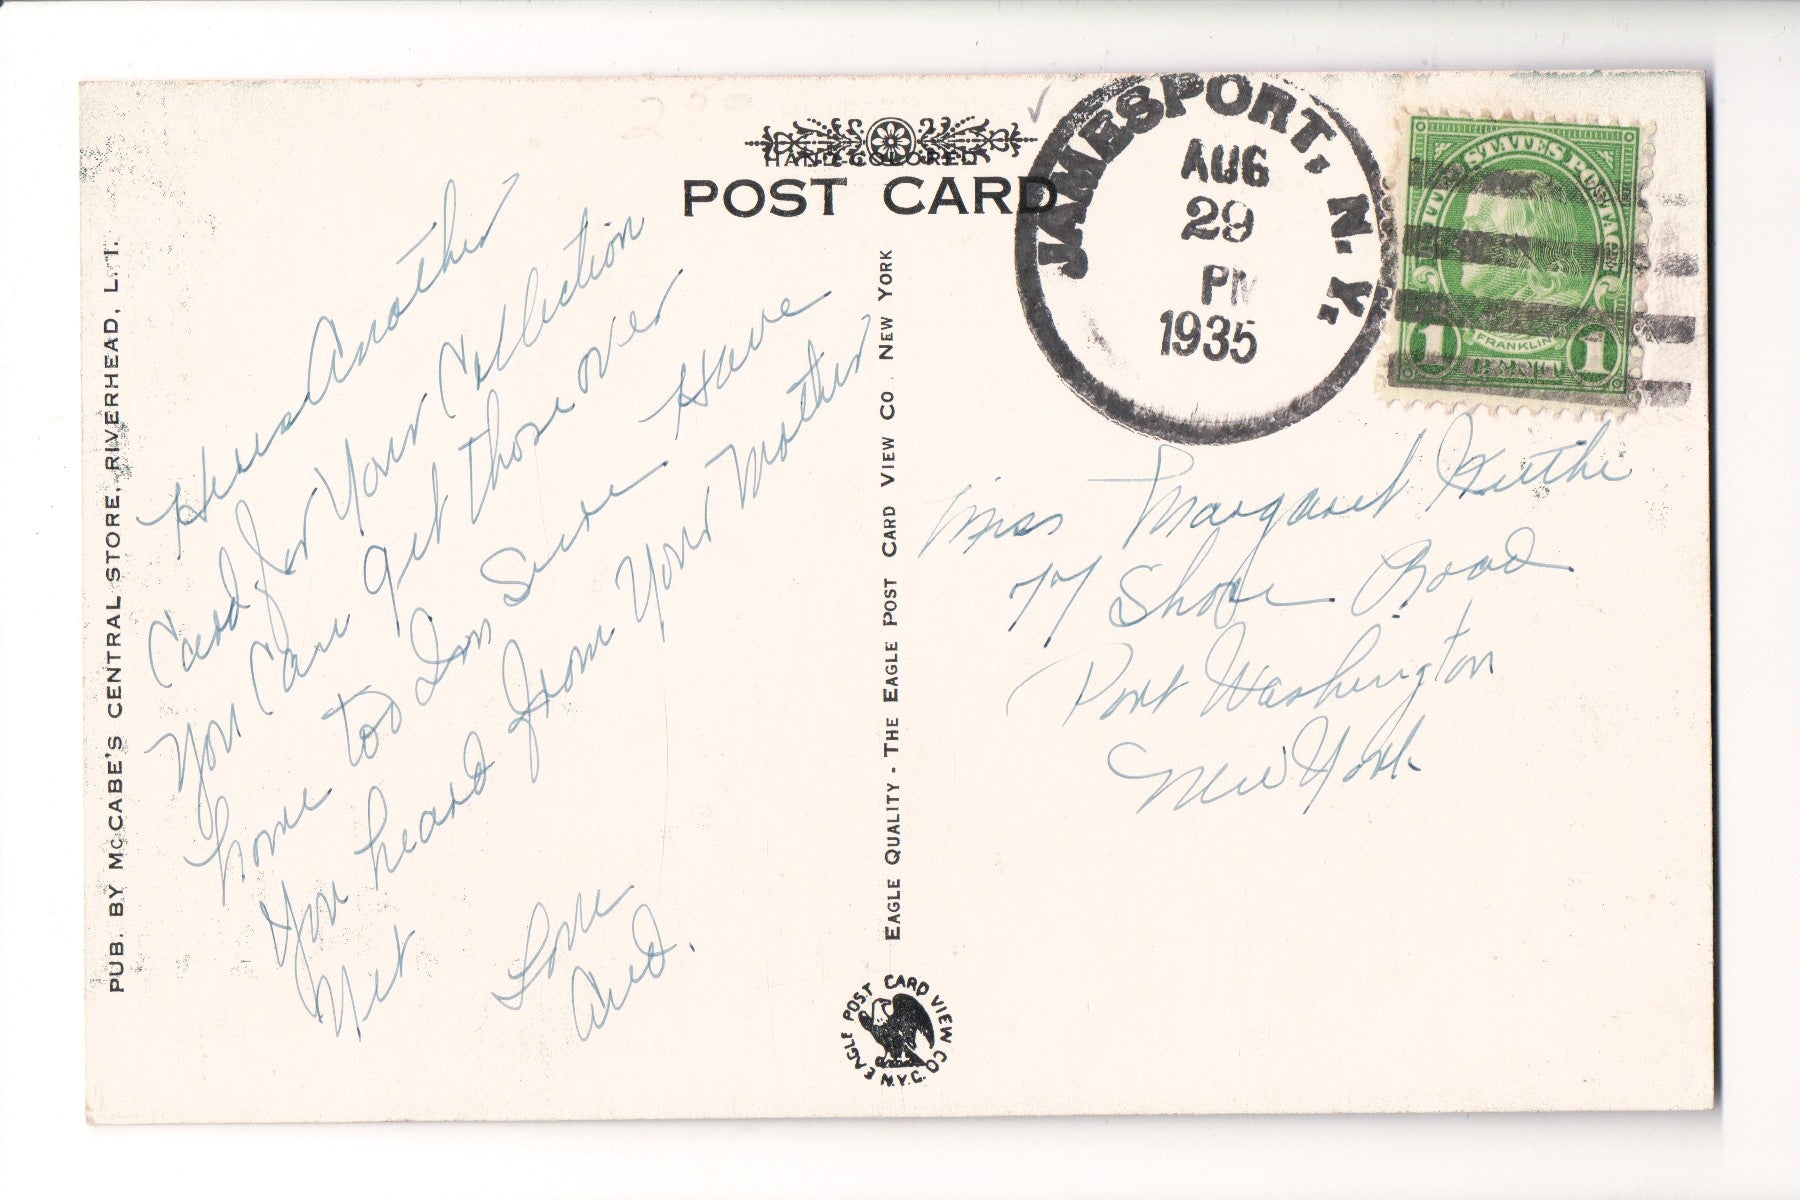 HAND-COLORED
POST CARD
JAMESPORT, N.Y.
AUG
29
PM
1935
UNITED STATES POSTAGE
FRANKLIN
1 CENT 1
PUB. BY MCCABE'S CENTRAL STORE, RIVERHEAD, L. I.
Heres Another
Card for Your Collection
You Can get those over
home too Im Sure Have
You heard from Your Mother
Yet
Love
EAGLE QUALITY - THE EAGLE POST CARD VIEW CO. NEW YORK
EAGLE POST CARD VIEW CO.
N.Y.C.
Miss Margaret
77 Shore Road
Port Washington
New York